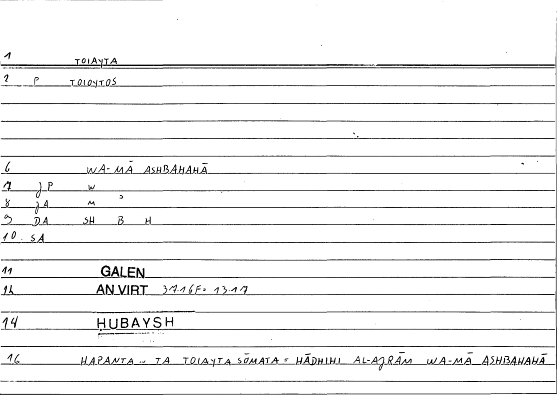 1 TOIAYTA
2 P TOIOYTOS
6 WA-MĀ ASHBAHAHĀ
7 JP W
8 JA M ʾ
9 DA SH B H
10. SA
11 GALEN
12 AN VIRT
14 ḤUBAYSH
16 HAPANTA .. TA TOIAYTA SŌMATA = HĀDHIHI AL-AJRĀM WA-MĀ ASHBAHAHĀ